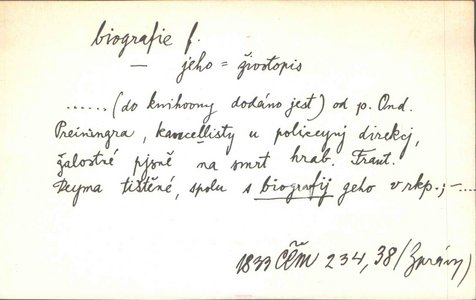 biografie f.
— jeho = životopis
...... (do knihovny dodáno jest) od p. Ond.
Preiningra, kancellisty u policeynj direkcj,
žalostné pjsně na smrt hrab. Frant.
Deyma tištěné, spolu s biografij geho v rkp.; –....
1833 ČČM 234, 38 (Zprávy)